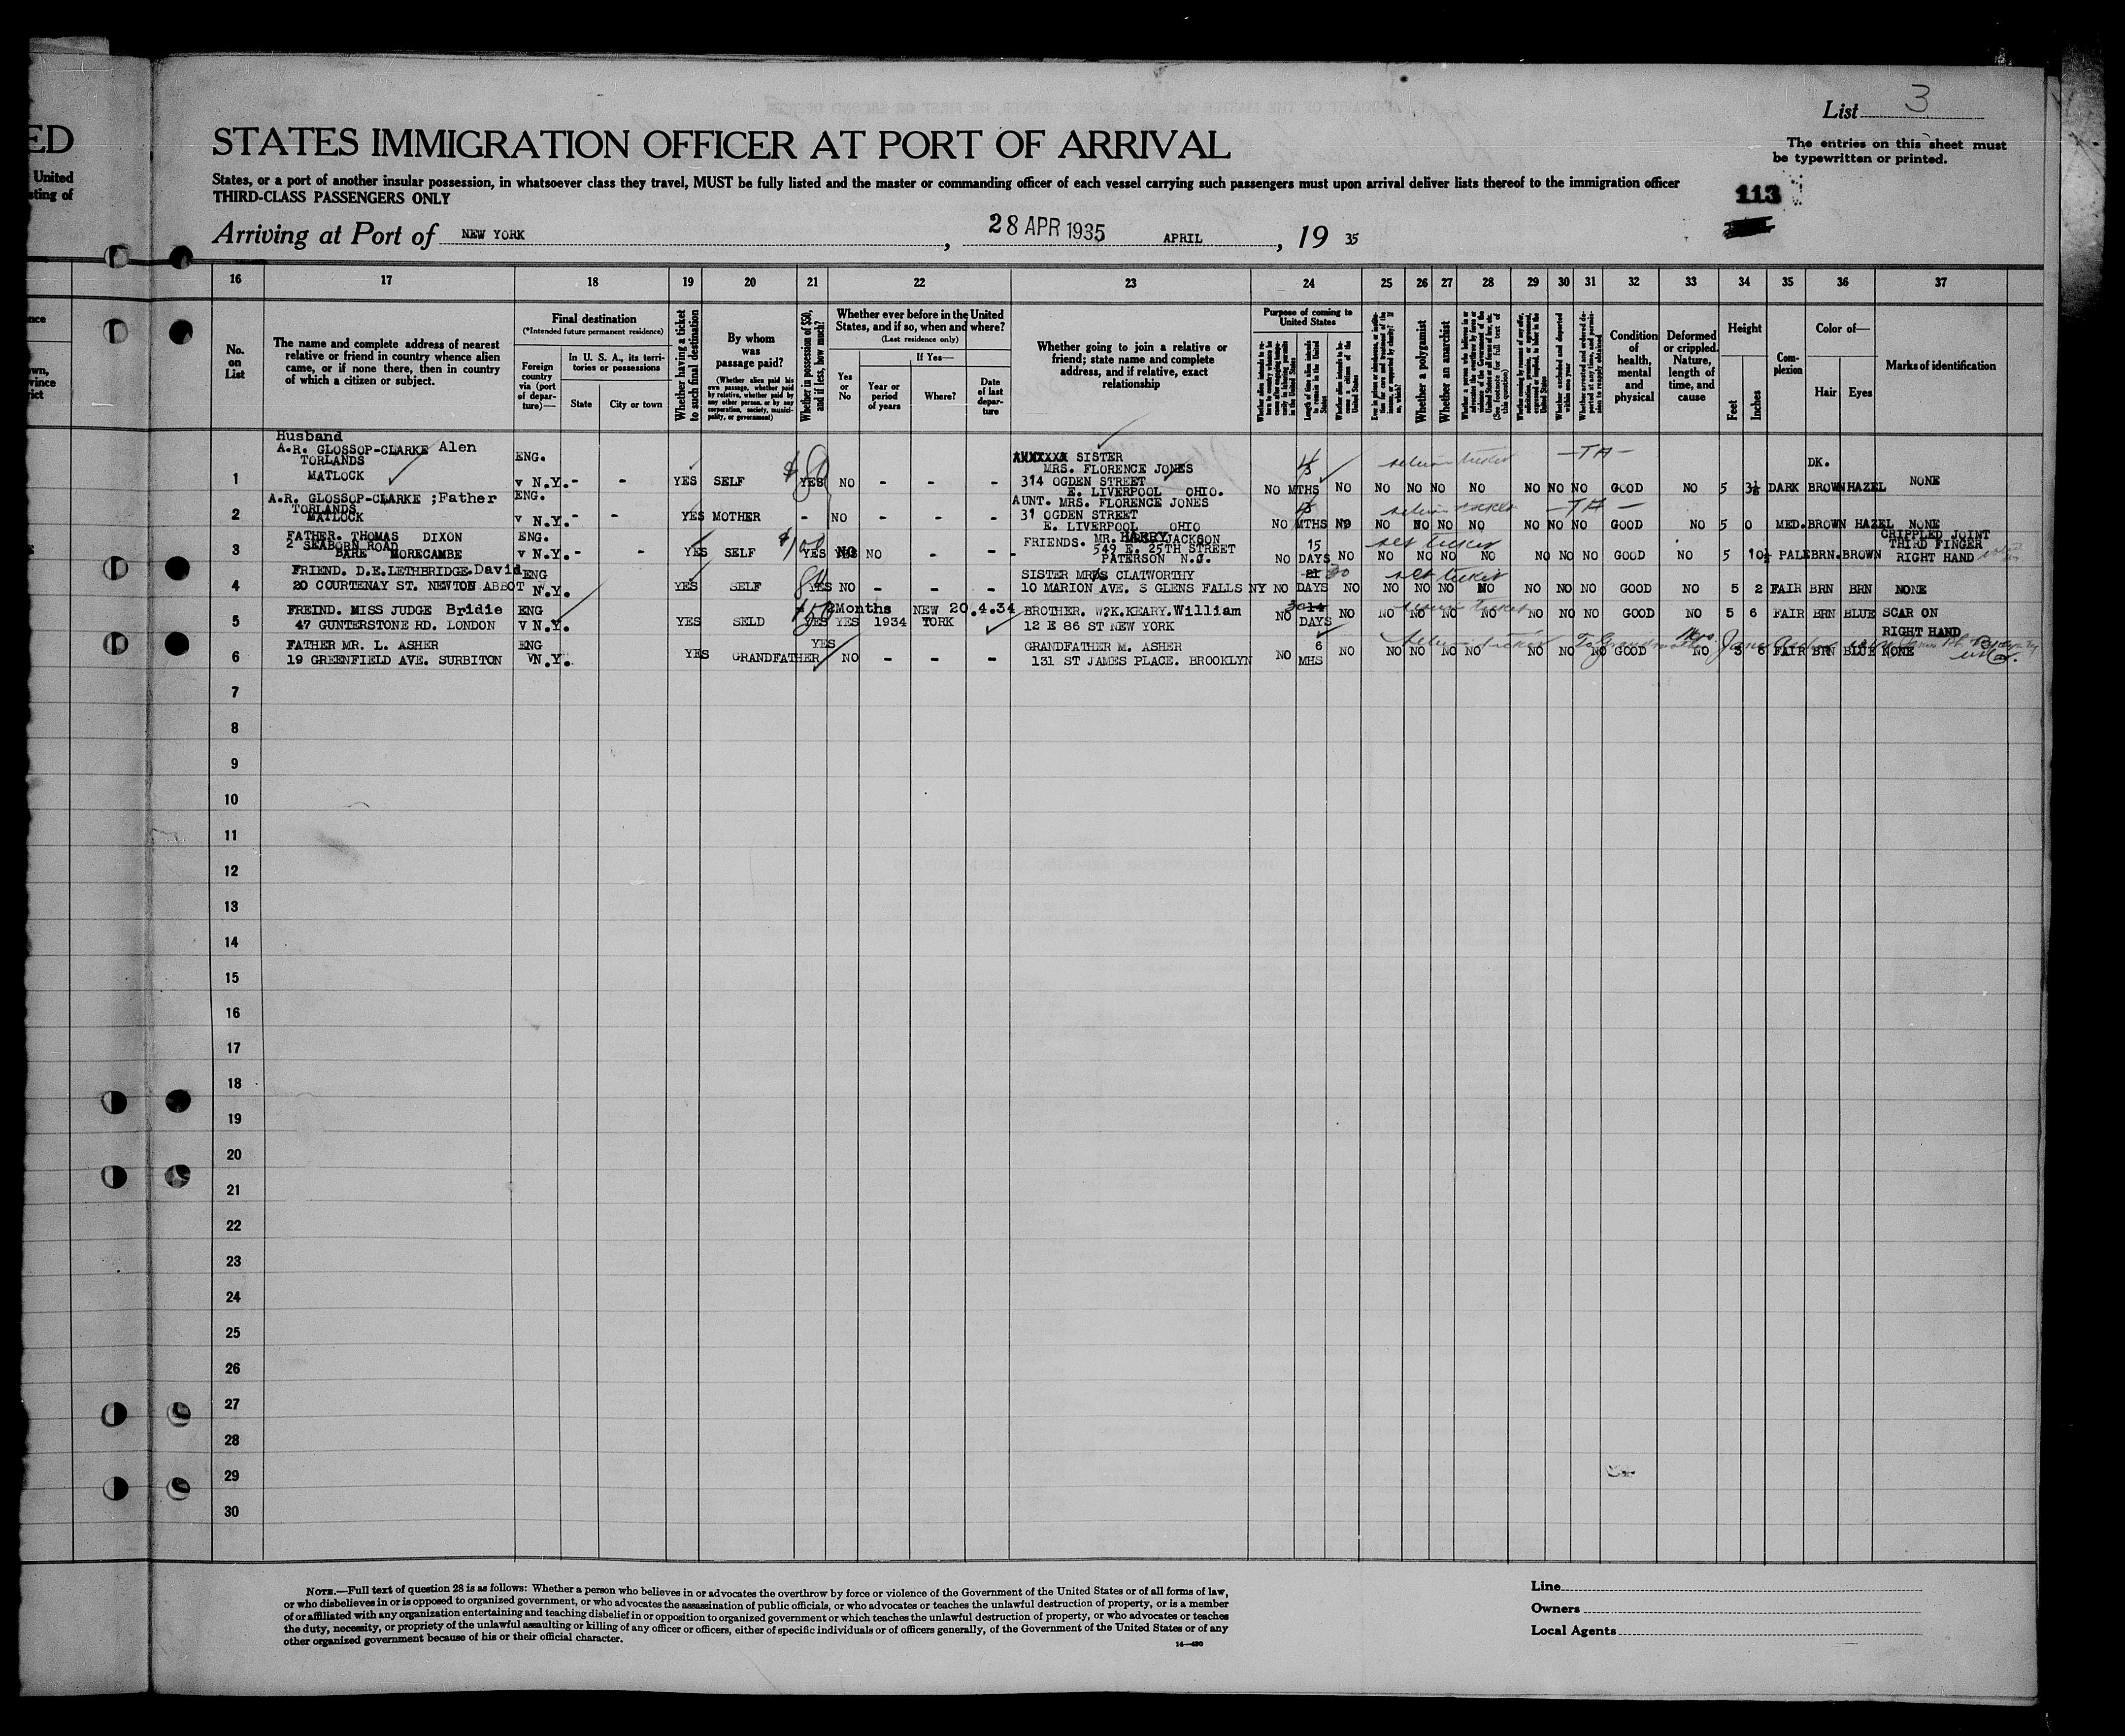 ED
United
sting of
List 3
The entries on this sheet must
be typewritten or printed.
STATES IMMIGRATION OFFICER AT PORT OF ARRIVAL
States, or a port of another insular possession, in whatsoever class they travel, MUST be fully listed and the master or commanding officer of each vessel carrying such passengers must upon arrival deliver lists thereof to the immigration officer
THIRD-CLASS PASSENGERS ONLY
113
Arriving at Port of NEW YORK, 28 APR 1935 APRIL, 19 35
16 17 18 19 20 21 22 23 24 25 26 27 28 29 30 31 32 33 34 35 36 37
No. on List
The name and complete address of nearest relative or friend in country whence alien came, or if none there, then in country of which a citizen or subject.
Final destination
(*Intended future permanent residence)
Foreign country via (port of departure)—
In U. S. A., its territories or possessions
State
City or town
Whether having a ticket to such final destination
By whom was passage paid?
(Whether alien paid his own passage, whether paid by relative, whether paid by any other person, or by any corporation, society, municipality, or government)
Whether in possession of $50, and if less, how much?
Whether ever before in the United States, and if so, when and where?
(Last residence only)
Yes or No
If Yes—
Year or period of years
Where?
Date of last departure
Whether going to join a relative or friend; state name and complete address, and if relative, exact relationship
Purpose of coming to United States
Length of time alien intends to remain in the United States
Whether alien intends to become citizen of the United States
Whether a polygamist
Whether an anarchist
Condition of health, mental and physical
Deformed or crippled. Nature, length of time, and cause
Height
Feet
Inches
Complexion
Color of—
Hair
Eyes
Marks of identification
1 Husband
A.R. GLOSSOP-CLARKE Alen
TORLANDS
MATLOCK
ENG.
v N.Y. - - YES SELF $50 YES NO - - -
SISTER
MRS. FLORENCE JONES
314 OGDEN STREET
E. LIVERPOOL OHIO.
NO MTHS NO NO NO NO NO NO NO NO GOOD NO 5 3½ DARK DK. BROWN HAZEL NONE
—TA—
2 A.R. GLOSSOP-CLARKE ;Father
TORLANDS
MATLOCK
ENG.
v N.Y. - - YES MOTHER - NO - - -
AUNT. MRS. FLORENCE JONES
31 OGDEN STREET
E. LIVERPOOL OHIO
NO MTHS NO NO NO NO NO NO NO NO GOOD NO 5 0 MED. BROWN HAZEL NONE
—TA—
3 FATHER. THOMAS DIXON
2 SEABORN ROAD
BARE MORECAMBE
ENG.
v N.Y. - - YES SELF $100 YES NO - - -
FRIENDS. MR. HARRY JACKSON
549 E. 25TH STREET
PATERSON N.J.
NO 15 DAYS NO NO NO NO NO NO NO NO GOOD NO 5 10½ PALE BRN. BROWN
CRIPPLED JOINT
THIRD FINGER
RIGHT HAND
ret ticket
4 FRIEND. D.E.LETHBRIDGE.David
20 COURTENAY ST. NEWTON ABBOT
ENG
N.Y. YES SELF 80 YES NO - - -
SISTER MRS CLATWORTHY
10 MARION AVE. S GLENS FALLS NY
NO 21 30 DAYS NO NO NO NO NO NO NO NO GOOD NO 5 2 FAIR BRN BRN NONE
ret ticket
5 FREIND. MISS JUDGE Bridie
47 GUNTERSTONE RD. LONDON
ENG
V N.Y. YES SELD $50 YES YES 2Months 1934 NEW YORK 20.4.34
BROTHER. W?K.KEARY.William
12 E 86 ST NEW YORK
NO 30 14 DAYS NO NO NO NO NO NO NO NO GOOD NO 5 6 FAIR BRN BLUE SCAR ON
RIGHT HAND
return ticket
6 FATHER MR. L. ASHER
19 GREENFIELD AVE. SURBITON
ENG
VN.Y. YES GRANDFATHER YES NO - - -
GRANDFATHER M. ASHER
131 ST JAMES PLACE. BROOKLYN
NO 6 MHS NO NO NO NO NO NO NO NO GOOD NO 3 6 FAIR BRN BLUE NONE
return ticket To Grandmother Mrs.
7
8
9
10
11
12
13
14
15
16
17
18
19
20
21
22
23
24
25
26
27
28
29
30
NOTE.—Full text of question 28 is as follows: Whether a person who believes in or advocates the overthrow by force or violence of the Government of the United States or of all forms of law,
or who disbelieves in or is opposed to organized government, or who advocates the assassination of public officials, or who advocates or teaches the unlawful destruction of property, or is a member
of or affiliated with any organization entertaining and teaching disbelief in or opposition to organized government or which teaches the unlawful destruction of property, or who advocates or teaches
the duty, necessity, or propriety of the unlawful assaulting or killing of any officer or officers, either of specific individuals or of officers generally, of the Government of the United States or of any
other organized government because of his or their official character.
14—420
Line
Owners
Local Agents